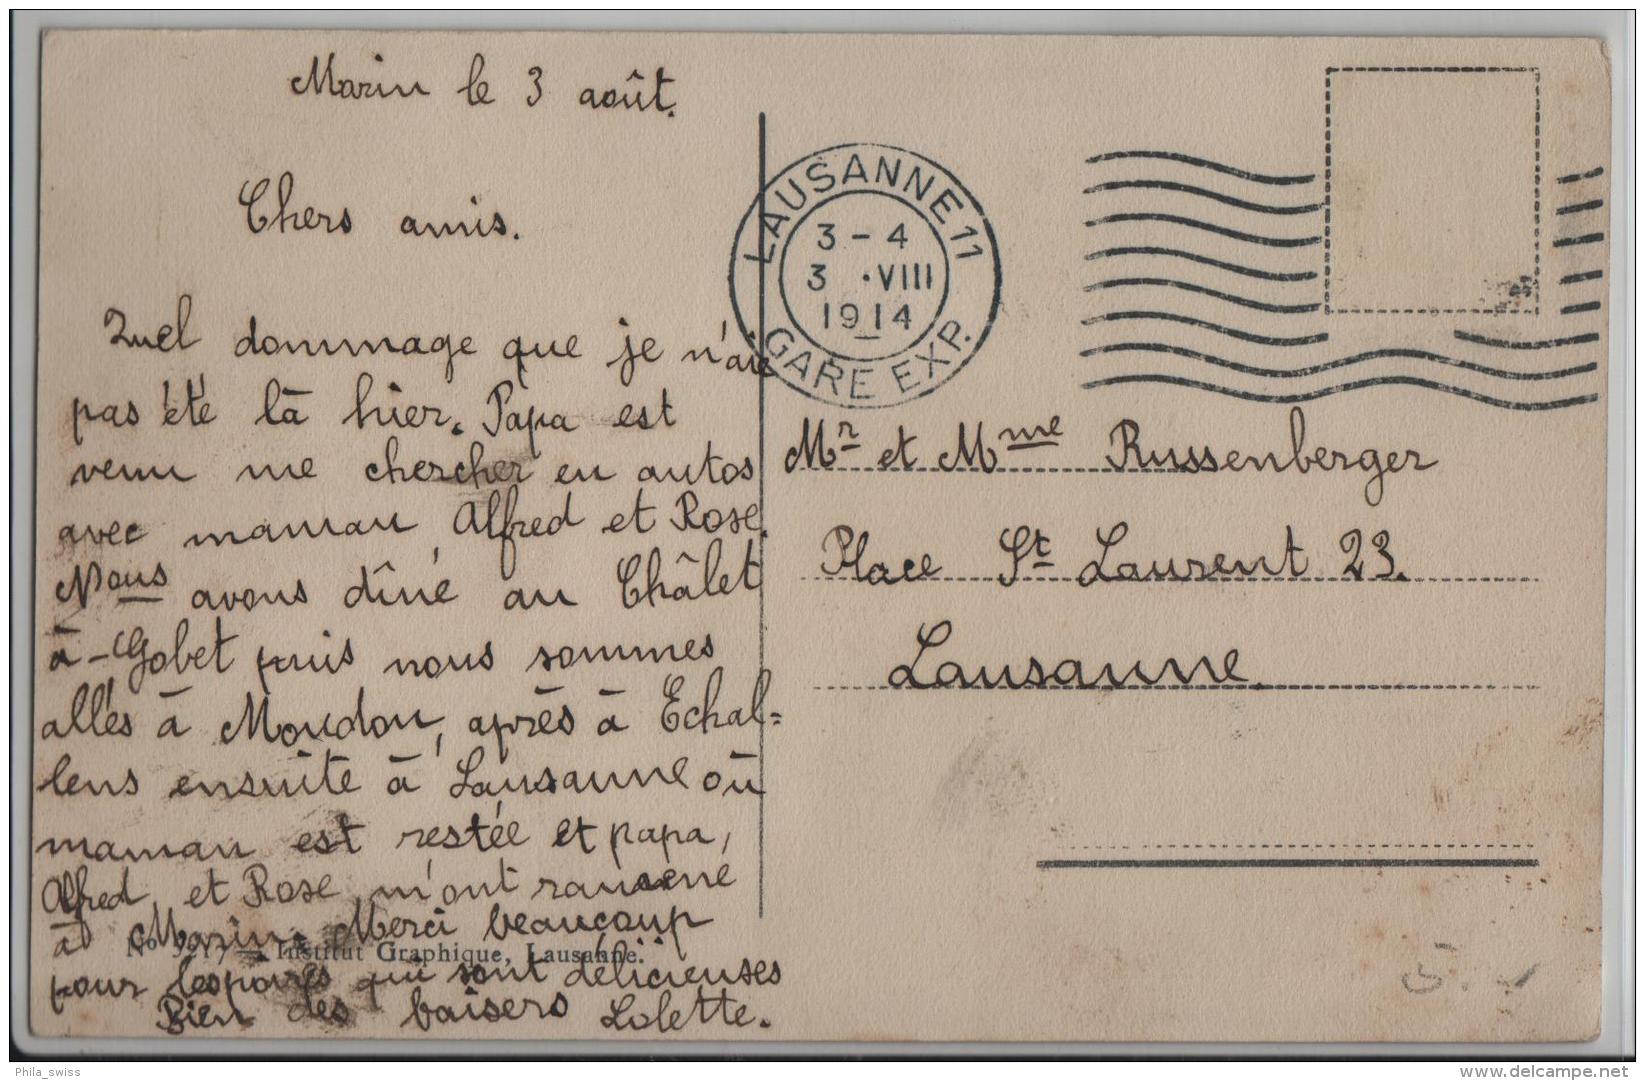 Marin le 3 août.
Chers amis.
Quel dommage que je n'aie
pas été là hier. Papa est
venu me chercher en autos
avec maman, Alfred et Rose.
Nous avons dîné au Châlet
à-Gobet puis nous sommes
allés à Moudon, après à Echal=
lens ensuite à Lausanne où
maman est restée et papa,
Alfred et Rose m'ont ramené
à Marin. Merci beaucoup
pour les poires qui sont délicieuses
Bien des baisers Lolette.
No 3217 — Institut Graphique, Lausanne.
LAUSANNE 11
3 - 4
3 .VIII
1914
GARE EXP.
Mr et Mme Russenberger
Place St Laurent 23.
Lausanne.
5.
Phila_swiss
www.delcampe.net